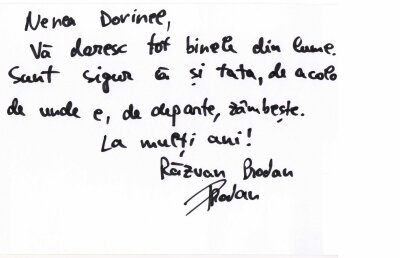 Nenea Dorinel,
Vă doresc tot binele din lume.
Sunt sigur că și tata, de acolo
de unde e, de departe, zâmbește.
La mulți ani!
Răzvan Brodan
Brodan